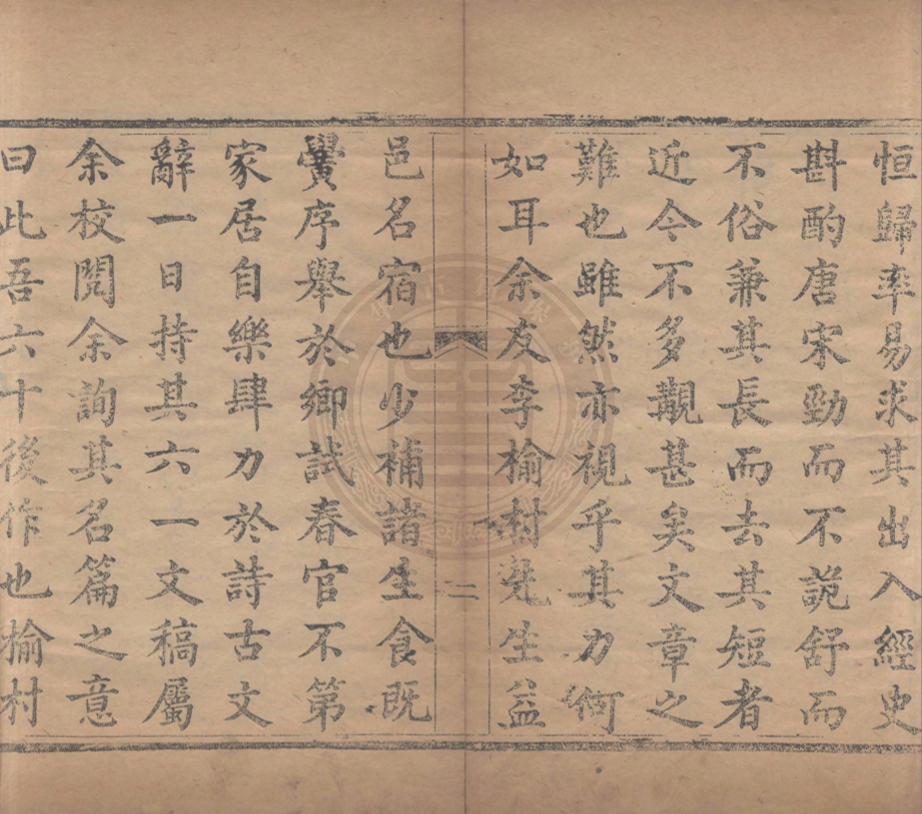 恒歸率易求其出入經史
斟酌唐宋勁而不詭舒而
不俗兼其長而去其短者
近今不多觀甚矣文章之
難也雖然亦視乎其力何
如耳余友李榆村先生益
二
邑名宿也少補諸生食既
黌序舉於鄉試春官不第
家居自樂肆力於詩古文
辭一日持其六一文稿屬
余校閱余詢其名篇之意
曰此吾六十後作也榆村